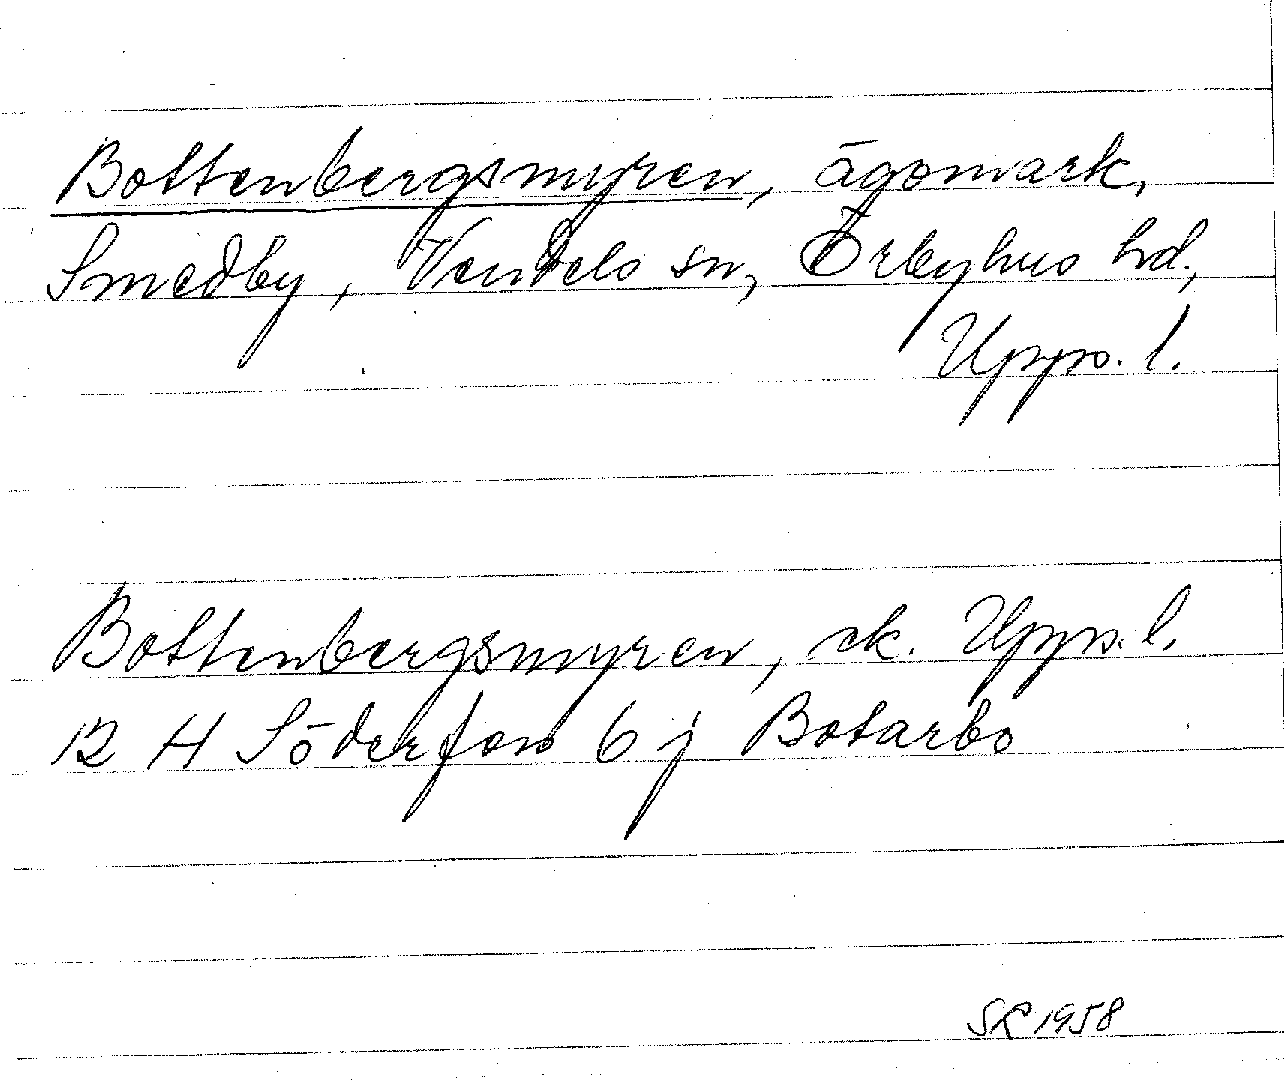 Bottenbergsmyren, ägomark,
Smedby, Vendels sn, Örbyhus hd,
Upps. l.
Bottenbergsmyren, ek. Upps. l.
12 H Söderfors 6 j Botarbo
SR 1958